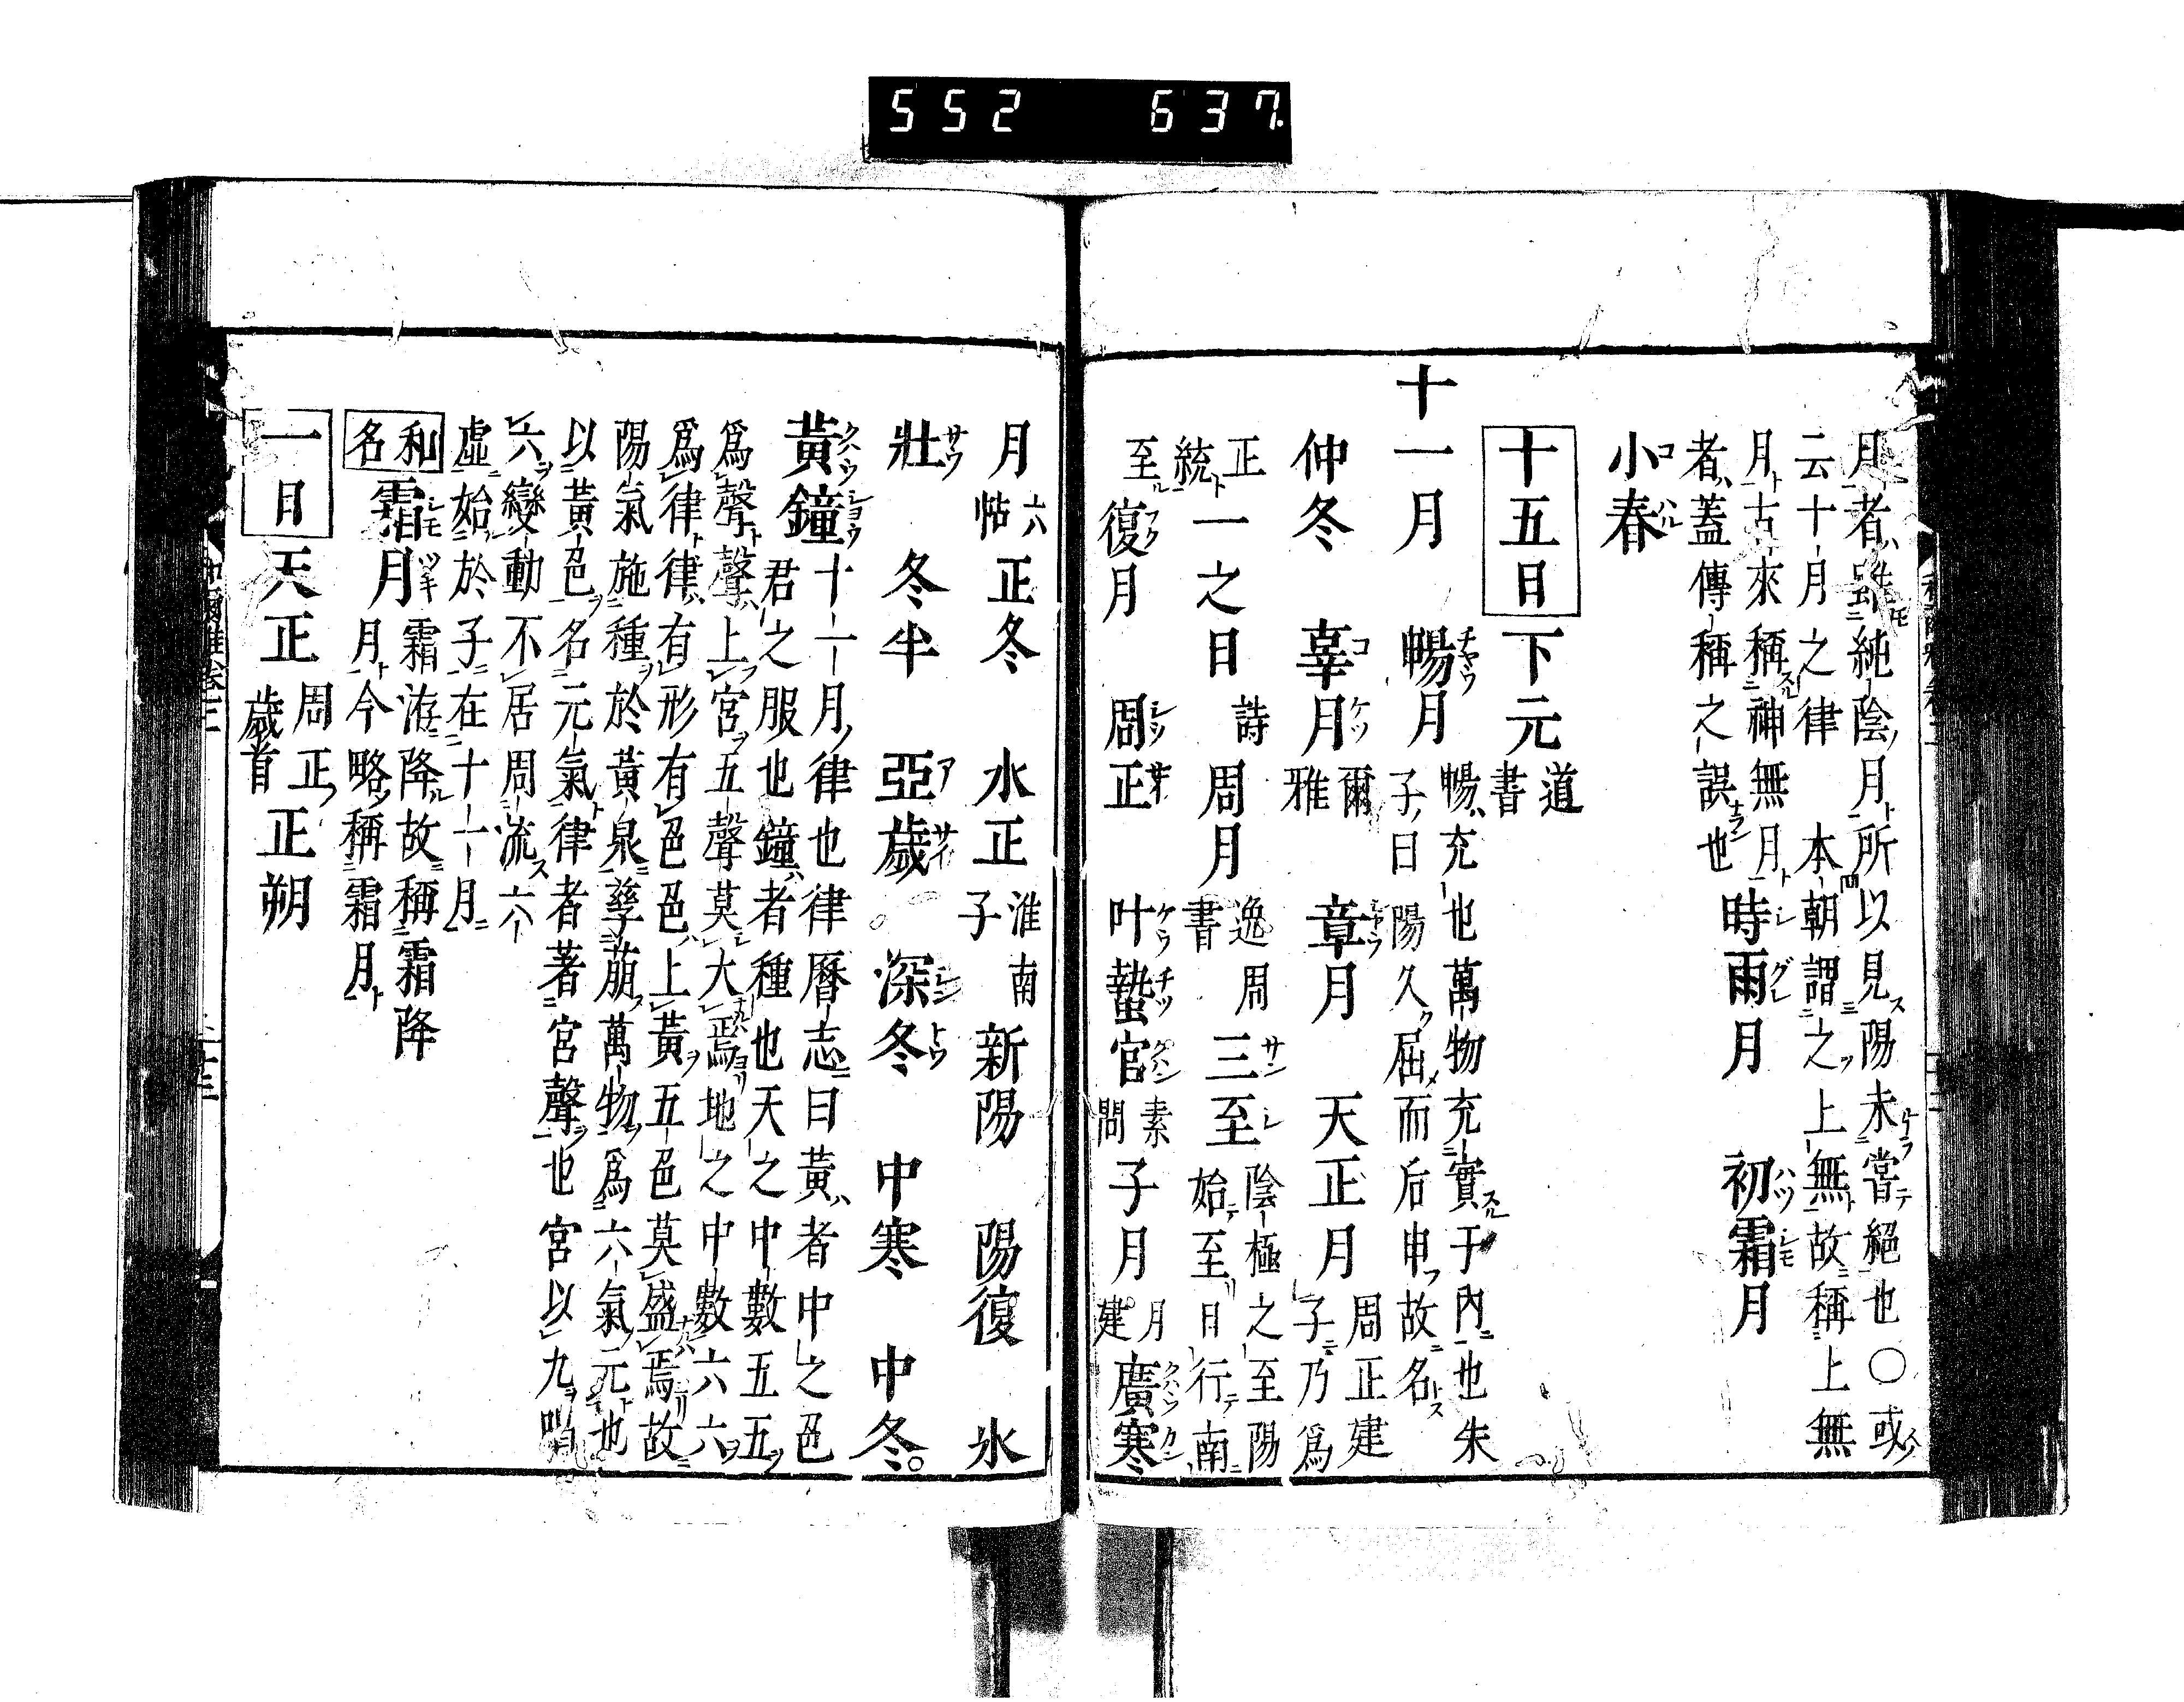 552 637
月者雖純陰月所以見陽未嘗絕也〇或
云十月之律 本朝謂之上無故稱上無
月古來稱神無月 時雨月 初霜月
者蓋傳稱之誤也
小春
十五日 下元 道書
十一月 暢月 暢充也萬物充實于內也朱
子曰陽久屈而后申故名
仲冬 辜月 爾雅 章月 天正月 周正建
子乃爲
正統 一之日 詩 周月 逸周書 三至 陰極之至陽
始至日行南
至 復月 周正 叶蟄官 素問 子月 月建 廣寒
月 六帖 正冬 水正 淮南子 新陽 陽復 氷
壯 冬半 亞歲 深冬 中寒 中冬
黃鐘 十一月律也律曆志曰黃者中之色
君之服也鐘者種也天之中數五五
爲聲聲上宮五聲莫大焉地之中數六六
爲律律有形有色色上黃五色莫盛焉故
陽氣施種於黃泉孳萌萬物爲六氣元也
以黃色名元氣律者著宮聲也宮以九唱
六變動不居周流六
虛始於子在十一月
和名 霜月 霜洊降故稱霜降
月今略稱霜月
一日 天正 周正歲首 正朔